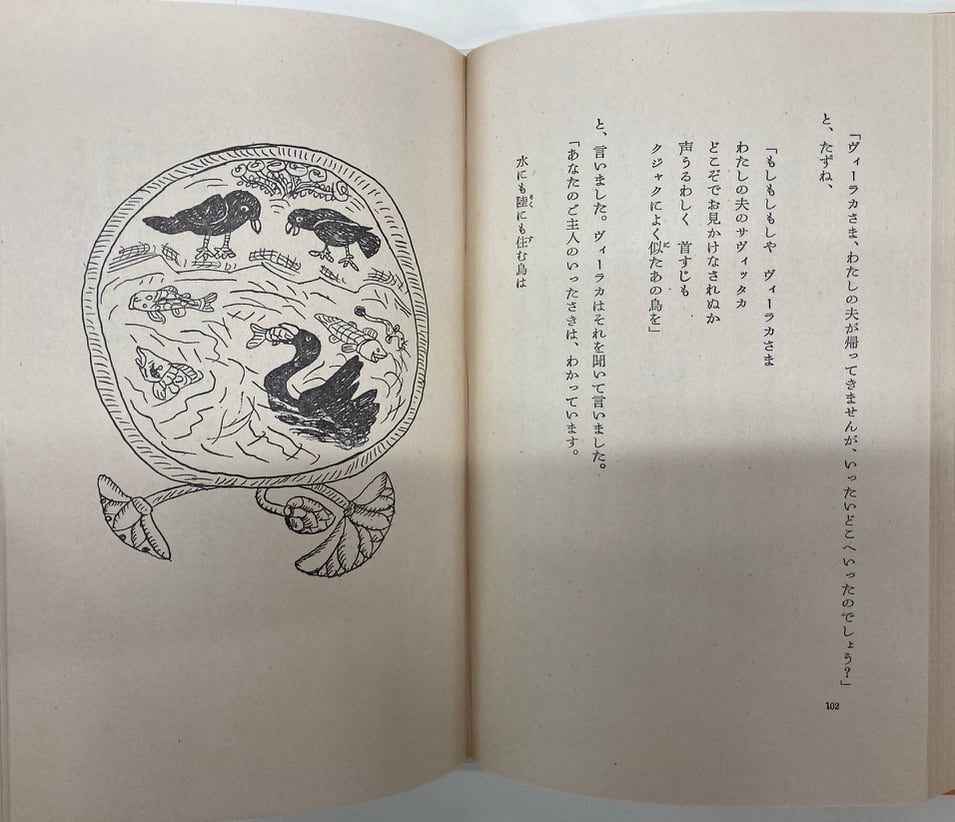 「ヴィーラカさま、わたしの夫が帰ってきませんが、いったいどこへいったのでしょう?」
と、たずね、
「もしもしもしや　ヴィーラカさま
わたしの夫のサヴィッタカ
どこぞでお見かけなされぬか
声うるわしく　首すじも
クジャクによく似たあの鳥を」
と、言いました。ヴィーラカはそれを聞いて言いました。
「あなたのご主人のいったさきは、わかっています。
水にも陸にも住む鳥は
102